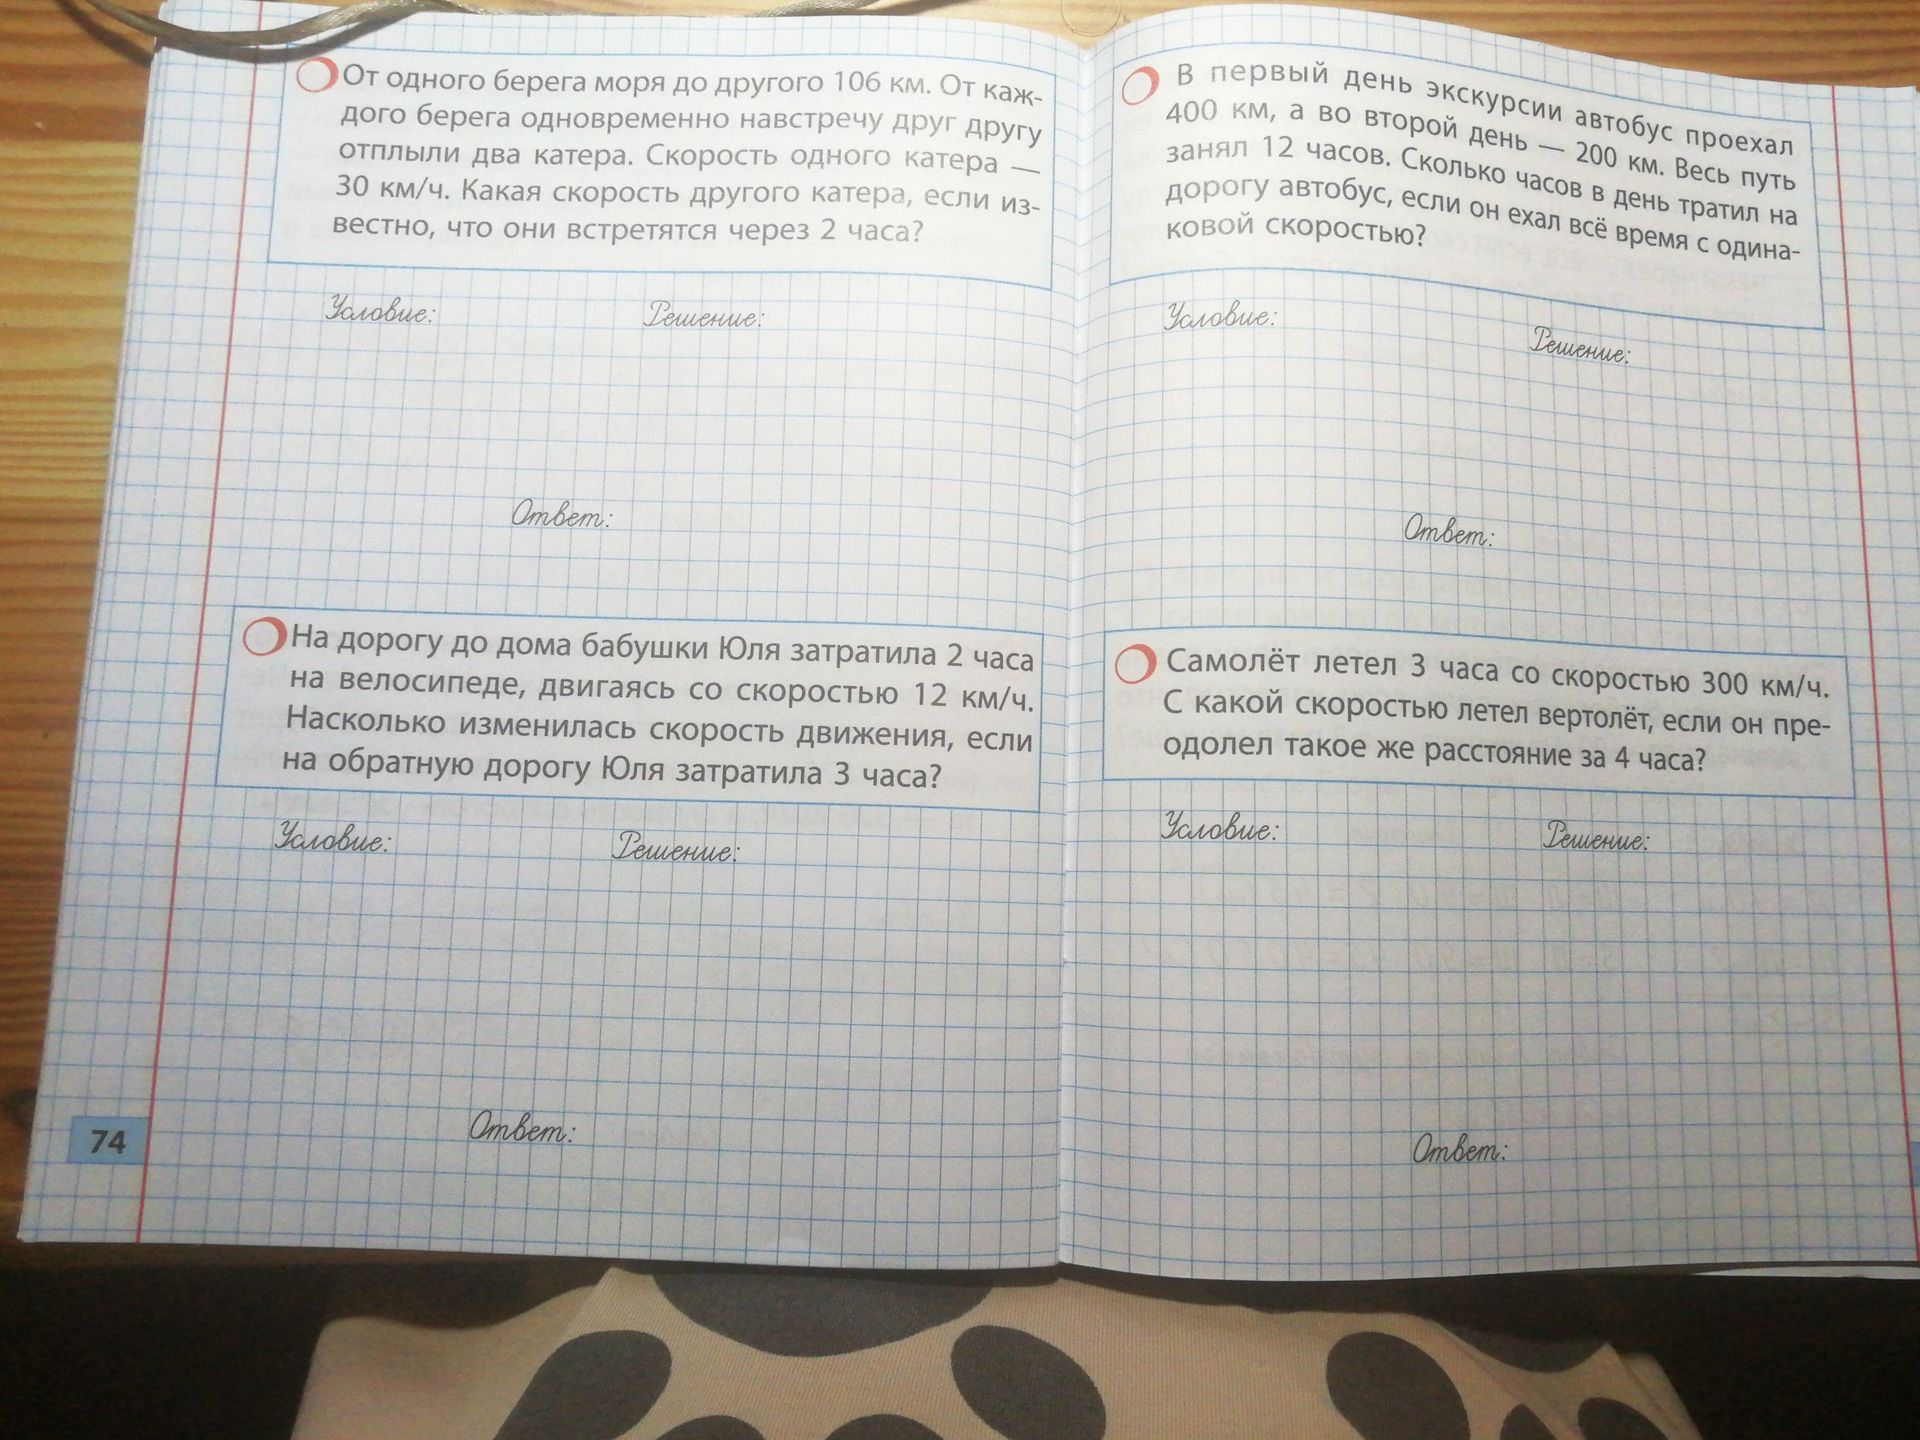 От одного берега моря до другого 106 км. От каж-
дого берега одновременно навстречу друг другу
отплыли два катера. Скорость одного катера —
30 км/ч. Какая скорость другого катера, если из-
вестно, что они встретятся через 2 часа?
Условие: Решение:
Ответ:
На дорогу до дома бабушки Юля затратила 2 часа
на велосипеде, двигаясь со скоростью 12 км/ч.
Насколько изменилась скорость движения, если
на обратную дорогу Юля затратила 3 часа?
Условие: Решение:
Ответ:
74
В первый день экскурсии автобус проехал
400 км, а во второй день — 200 км. Весь путь
занял 12 часов. Сколько часов в день тратил на
дорогу автобус, если он ехал всё время с одина-
ковой скоростью?
Условие: Решение:
Ответ:
Самолёт летел 3 часа со скоростью 300 км/ч.
С какой скоростью летел вертолёт, если он пре-
одолел такое же расстояние за 4 часа?
Условие: Решение:
Ответ: